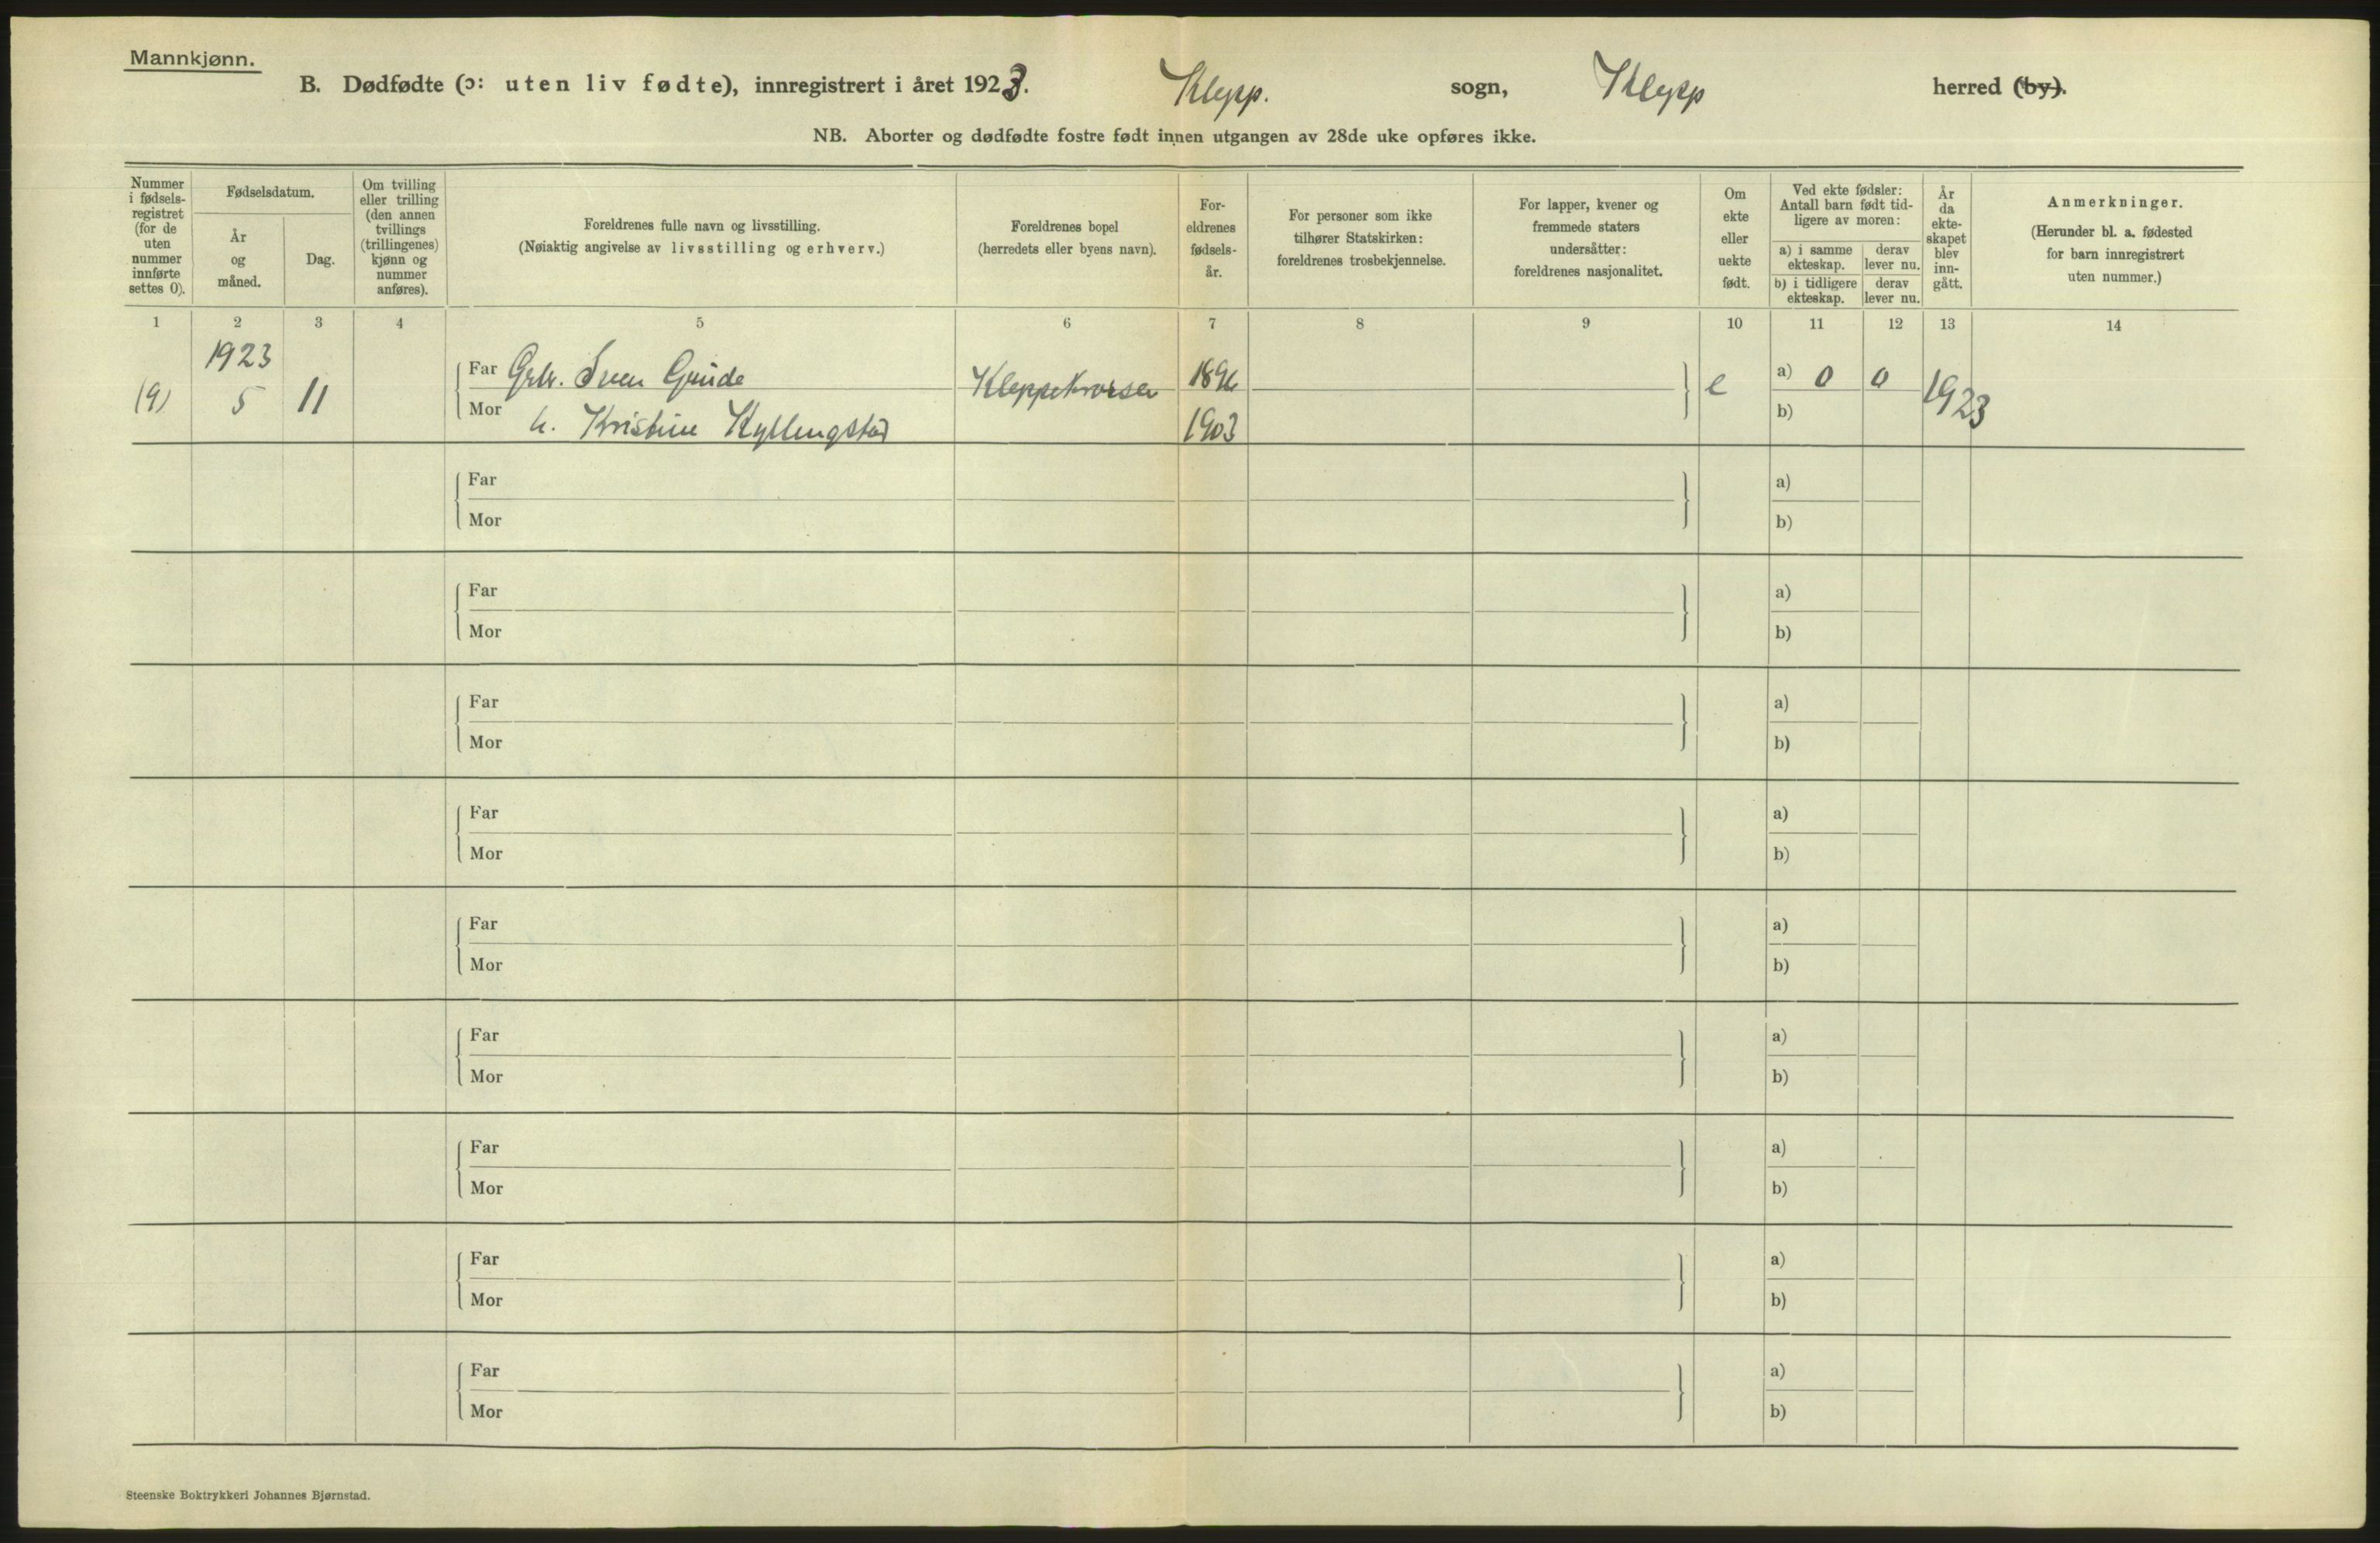 Mannkjønn.
B. Dødfødte (ɔ: uten liv fødte), innregistrert i året 1923. Klepp. sogn, Klepp herred (by).
NB. Aborter og dødfødte fostre født innen utgangen av 28de uke opføres ikke.
Nummer i fødsels-registret (for de uten nummer innførte settes 0).
Fødselsdatum.
År og måned.
Dag.
Om tvilling eller trilling (den annen tvillings (trillingenes) kjønn og nummer anføres).
Foreldrenes fulle navn og livsstilling.
(Nøiaktig angivelse av livsstilling og erhverv.)
Foreldrenes bopel
(herredets eller byens navn).
For-eldrenes fødsels-år.
For personer som ikke tilhører Statskirken: foreldrenes trosbekjennelse.
For lapper, kvener og fremmede staters undersåtter: foreldrenes nasjonalitet.
Om ekte eller uekte født.
Ved ekte fødsler: Antall barn født tid-ligere av moren:
a) i samme ekteskap. derav lever nu.
b) i tidligere ekteskap. derav lever nu.
År da ekte-skapet blev inn-gått.
Anmerkninger.
(Herunder bl. a. fødested for barn innregistrert uten nummer.)
1 2 3 4 5 6 7 8 9 10 11 12 13 14
1923
Far Grbr. Sven Grude Kleppekrossen 1896 e a) 0 0 1923
(9) 5 11
Mor h. Kristine Kyllingstad 1903 b)
Far a)
Mor b)
Far a)
Mor b)
Far a)
Mor b)
Far a)
Mor b)
Far a)
Mor b)
Far a)
Mor b)
Far a)
Mor b)
Far a)
Mor b)
Far a)
Mor b)
Steenske Boktrykkeri Johannes Bjørnstad.